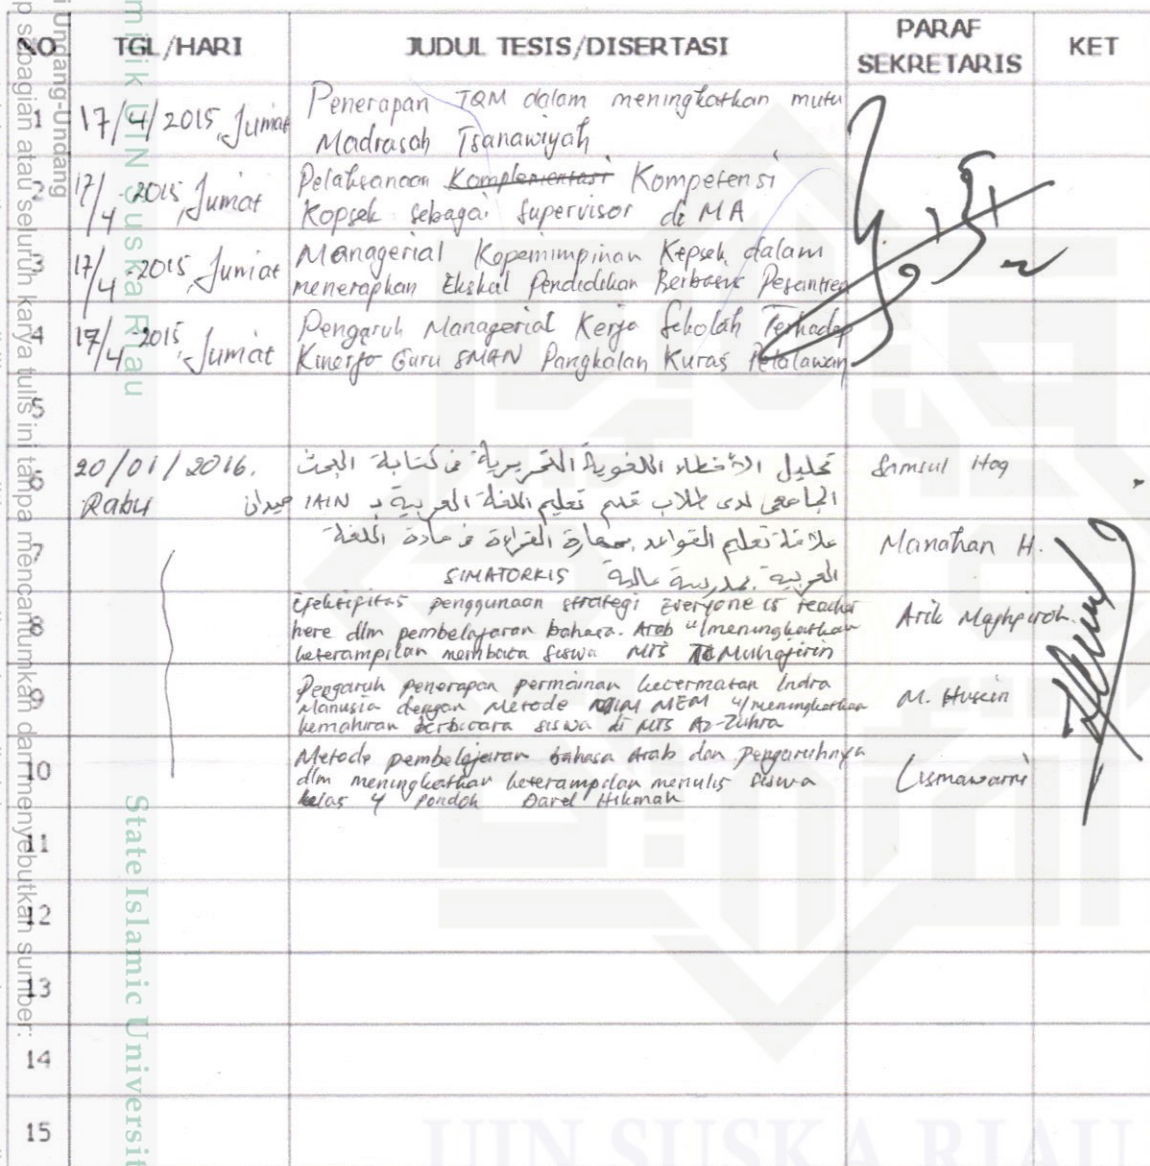 NO TGL/HARI JUDUL TESIS/DISERTASI PARAF SEKRETARIS KET
1 17/4/2015, Jumat Penerapan TQM dalam meningkatkan mutu
Madrasah Tsanawiyah
2 17/4-2015, Jumat Pelaksanaan Komplementasi Kompetensi
Kopsek sebagai supervisor di MA
3 17/4-2015, Jumat Managerial Kopemimpinan Kepsek dalam
menerapkan Ekskul Pendidikan Berbasis Pesantren
4 17/4-2015, Jumat Pengaruh Managerial Kerja Sekolah Terhadap
Kinerja Guru SMAN Pangkalan Kuras Pelalawan
5
6 20/01/2016. تحليل الأخطاء اللغوية التحريرية في كتابة البحث Samsul Haq
Rabu الجامعي لدى طلاب قسم تعليم اللغة العربية بـ IAIN ميدان
7 علاقة تعليم القواعد بمهارة القراءة في مادة اللغة Manahan H.
العربية بمدرسة عالية SIMATORKIS
8 Efektifitas penggunaan strategi Everyone is teacher
here dlm pembelajaran bahasa Arab u/meningkatkan Arik Maghpiroh
keterampilan membaca siswa MTS Muhajirin
9 Pengaruh penerapan permainan kecermatan Indra
Manusia dengan Metode MIM MEM u/meningkatkan M. Husein
kemahiran berbicara siswa di MTS Az-Zuhra
10 Metode pembelajaran bahasa Arab dan pengaruhnya
dlm meningkatkan keterampilan menulis siswa Lismawarni
kelas 4 pondok Darel Hikmah
11
12
13
14
15
Undang-Undang
sebagian atau seluruh karya tulis ini tanpa mencantumkan dan menyebutkan sumber:
milik UIN Suska Riau
State Islamic Universit
UIN SUSKA RIAU